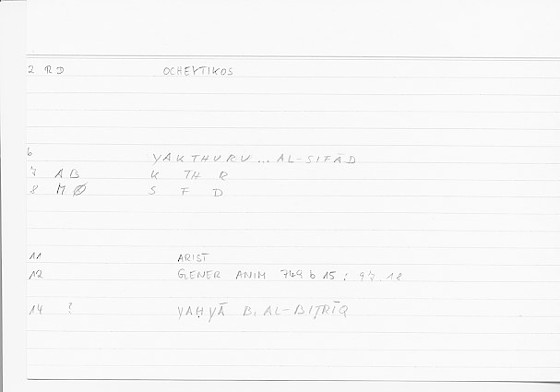 2 RD OCHEYTIKOS
6 YAKTHURU... AL-SIFĀD
7 AB K TH R
8 M Ø S F D
11 ARIST
12 GENER ANIM 749 b 15 ; 97. 18
14 ? YAḤYĀ B. AL-BIṬRĪQ